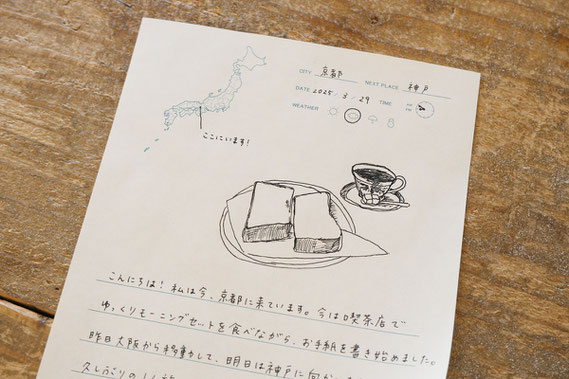 CITY 京都 NEXT PLACE 神戸
DATE 2025 / 3 / 29 TIME
WEATHER
ここにいます!
こんにちは! 私は今、京都に来ています。今は喫茶店で
ゆっくりモーニングセットを食べながら、お手紙を書き始めました。
昨日大阪から移動して、明日は神戸に向か
久しぶりの1人旅